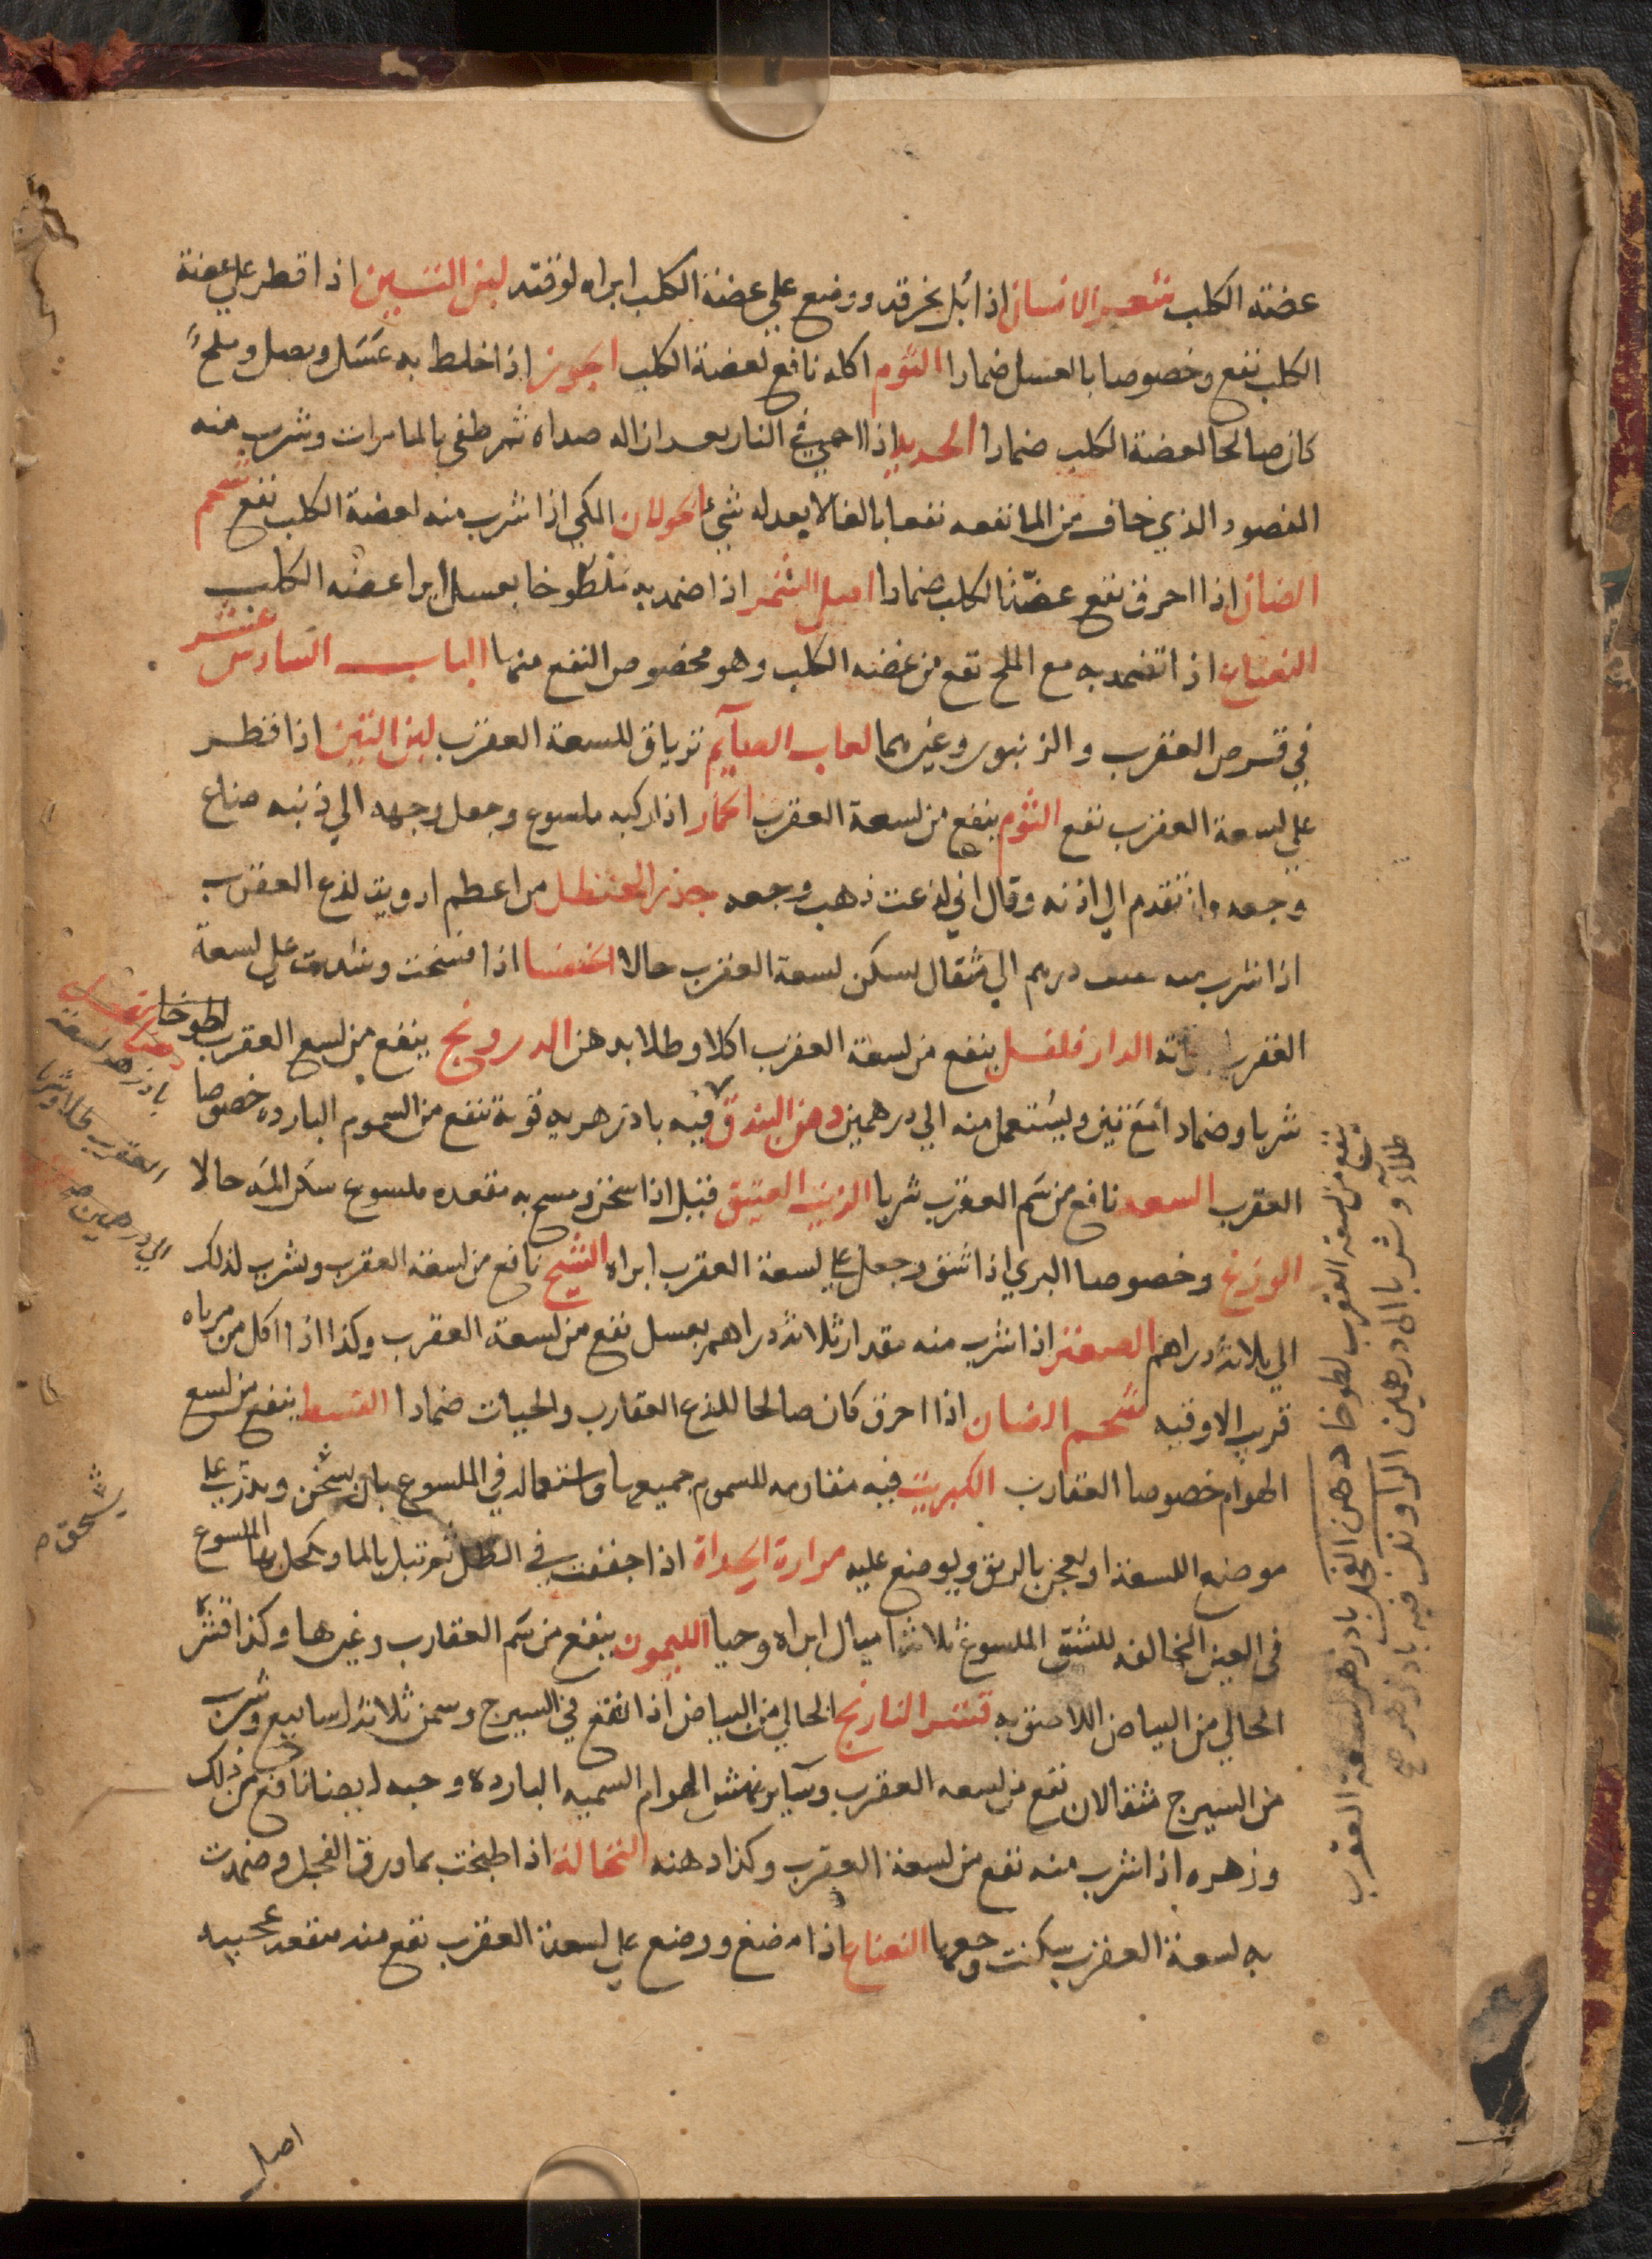 عضته الكلب شعر الانسان اذا بُل بخرقه ووضع علي عضة الكلب ابراه لوقته لبن التين اذا قطر علي عضة
الكلب نفع وخصوصا بالعسل ضمادا الثوم اكله نافع لعضة الكلب الجوز اذا خلط به عسل وبصل وملح
كان صالحا لعضة الكلب ضمادا الحديد اذا احمي في النار بعد ازاله صداه ثم طفي بالما مرات وشرب منه
المعضود الذي خاف من الما نفعه نفعا بالغا لا يعدله شيء الحولان المكي اذا شرب منه لعضة الكلب نفع شحم
الضان اذا احرق نفع عضّة الكلب ضمادا اصل الشمر اذا ضمد به مطلوخا بعسل ابرا عضه الكلب
النعناع اذا تضمد به مع الملح نفع من عضه الكلب وهو مخصوص النفع منها الباب السادس عشر
في قرص العقرب والزنبور وغيرهما لعاب الصآيم ترياق للسعة العقرب لبن التين اذا قطر
علي لسعة العقرب نفع الثوم ينفع من لسعة العقرب الحمار اذا ركبه ملسوع وجعل وجهه الي ذنبه ضاع
وجعه وان تقدم الي اذنه وقال اني لذعت ذهب وجعه جذر الحنظل من اعظم ادويت لذع العقرب
اذا شرب منه نصف درهم الي مثقال لسكن لسعة العقرب حالا الخنفسا اذا فسخت وشدت علي لسعة
العقرب الدار فلفل ينفع من لسعة العقرب اكلا وطلا بدهن الدرونج ينفع من لسع العقرب لطوخا
شربا وضمادا مع تين ويستعمل منه الي درهمين دهن البندق فيه بادزهريه قوية تنفع من السموم البارده خصوصا
العقرب السعد نافع من سم العقرب شربا الزيت العتيق قيل اذا سخن ومسح به مقعده ملسوع سكن المه حالا
الوزغ وخصوصا البري اذا شق وجعل علي لسعة العقرب ابراه الشيح نافع من لسعة العقرب وشرب لذلك
الي ثلاثة دراهم الصعتر اذا شرب منه مقدار ثلاثة دراهم بعسل نفع من لسعة العقرب وكذا اذا اكل من مرباه
قريب الاوقيه شحم الضان اذا احرق كان صالحا للذع العقارب والحيات ضمادا القسط ينفع من لسع
الهوام خصوصا العقارب الكبريت فيه مقاومه للسموم جميعها واستعماله في الملسوع بان يسحق ويذر علي
موضع اللسعة او يعجن بالريق ويوضع عليه مرارة الحداة اذا جففت في الظل ثم تبل بالما وكحل بها الملسوع
في العين المخالفه للشق الملسوع ثلاثة اميال ابراه وحيا الليمون ينفع من سم العقارب وغيرها وكذا قشره
الخالي من البياض اللاصق به قشر النارنج الخالي من البياض اذا انقع في السيرج وسمن ثلاثة اسابيع وشرب
من السيرج مثقالان نفع من لسعه العقرب وسآير نهش الهوام السميه البارده وحبه ايضا نافع من ذلك
وزهره اذا شرب منه نفع من لسعة العقرب وكذا دهنه النخالة اذا طبخت بما ورق الفجل وضمدت
به لسعة العقرب سكنت وجعها النعناع اذا مضغ ووضع علي لسعة العقرب نفع منه منفعه عجيبه
بادزهر لسعة
العقرب طلا وشربا
الي درهمين صح
يسحق صح
ينفع من لسعة العقرب لطوخا دهن الفجل بادزهر لسعة العقرب
طلآء وشربا الى درهمين الراوند فيه بادزهر صح
اصل